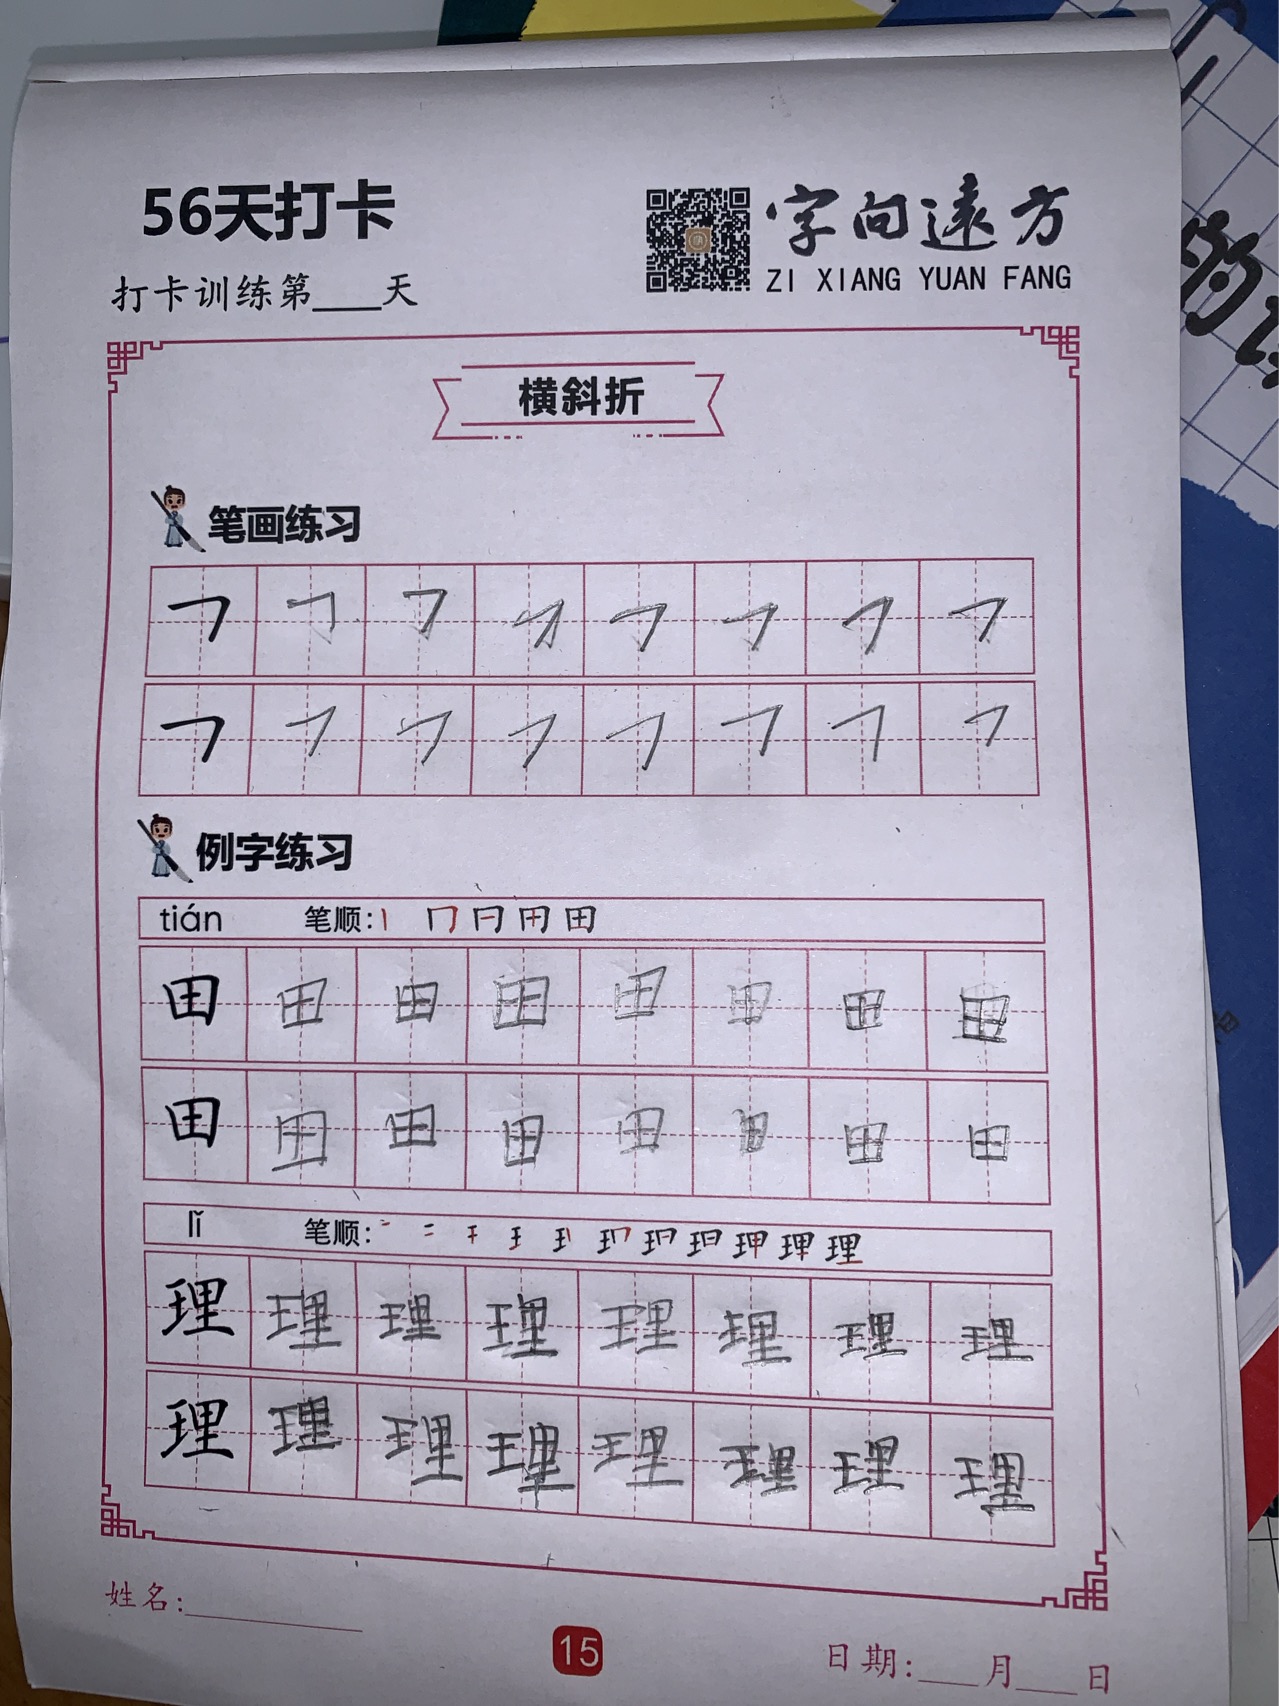 56天打卡
字向遠方
ZI XIANG YUAN FANG
打卡训练第____天
横斜折
笔画练习
㇇ ㇇ ㇇ ㇇ ㇇ ㇇ ㇇ ㇇
㇇ ㇇ ㇇ ㇇ ㇇ ㇇ ㇇ ㇇
例字练习
tián 笔顺:
田 田 田 田 田 田 田 田
田 田 田 田 田 田 田 田
lǐ 笔顺:
理 理 理 理 理 理 理 理
理 理 理 理 理 理 理 理
姓名:
15
日期:____月____日